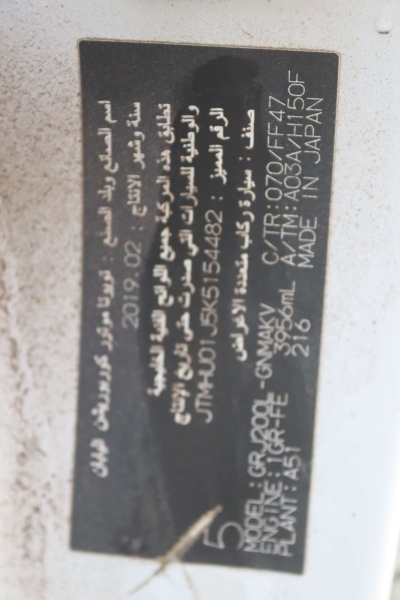 اسم الصانع وبلد الصنع : تويوتا موتور كوربوريشن اليابان
سنة وشهر الانتاج : 2019.02
تطابق هذه المركبة جميع اللوائح الفنية الخليجية
والوطنية للسيارات التي صدرت حتى تاريخ الإنتاج
الرقم المميز : JTMHU01J5K5154482
صنف : سيارة ركاب متعددة الاغراض
5
MODEL:GRJ200L-GNMAKV C/TR:070/FF47
ENGINE:1GR-FE 3956mL A/TM:A03A/H150F
PLANT:A51 216 MADE IN JAPAN